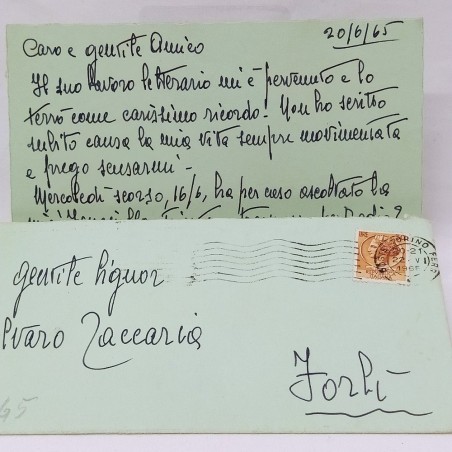 20/6/65
Caro e gentile Amico
Il suo lavoro letterario mi è pervenuto e lo
terrò come carissimo ricordo. Non ho scritto
subito causa la mia vita sempre movimentata
e prego scusarmi -
Mercoledì scorso, 16/6, ha per caso ascoltato la
TORINO FERR
21
VI
1965
gentile Signor
lvaro Zaccaria
Forlì
45